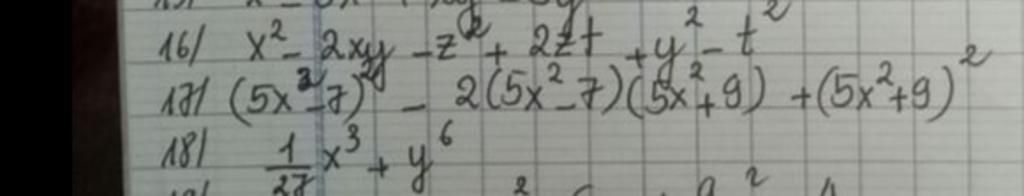 16/ x² - 2xy - z² + 2zt + y² - t²
17/ (5x² - 7)² - 2(5x² - 7)(5x² + 9) + (5x² + 9)²
18/ 1/27 x³ + y⁶